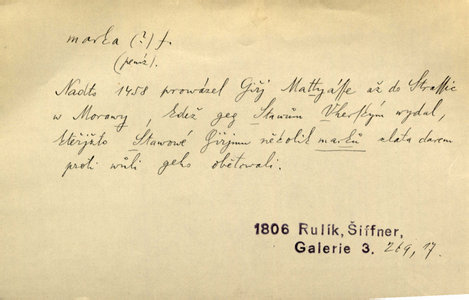 marka (?) f.
(peníz).
Nadto 1458 prowázel Giřj Mattyáše až do Strassic
w Morawy, kdež geg Stawům Vherským wydal,
kteřjžto Stawowé Giřjmu několik marků zlata darem
proti wůli geho obětowali.
1806 Rulík, Šiffner,
Galerie 3. 269, 17.